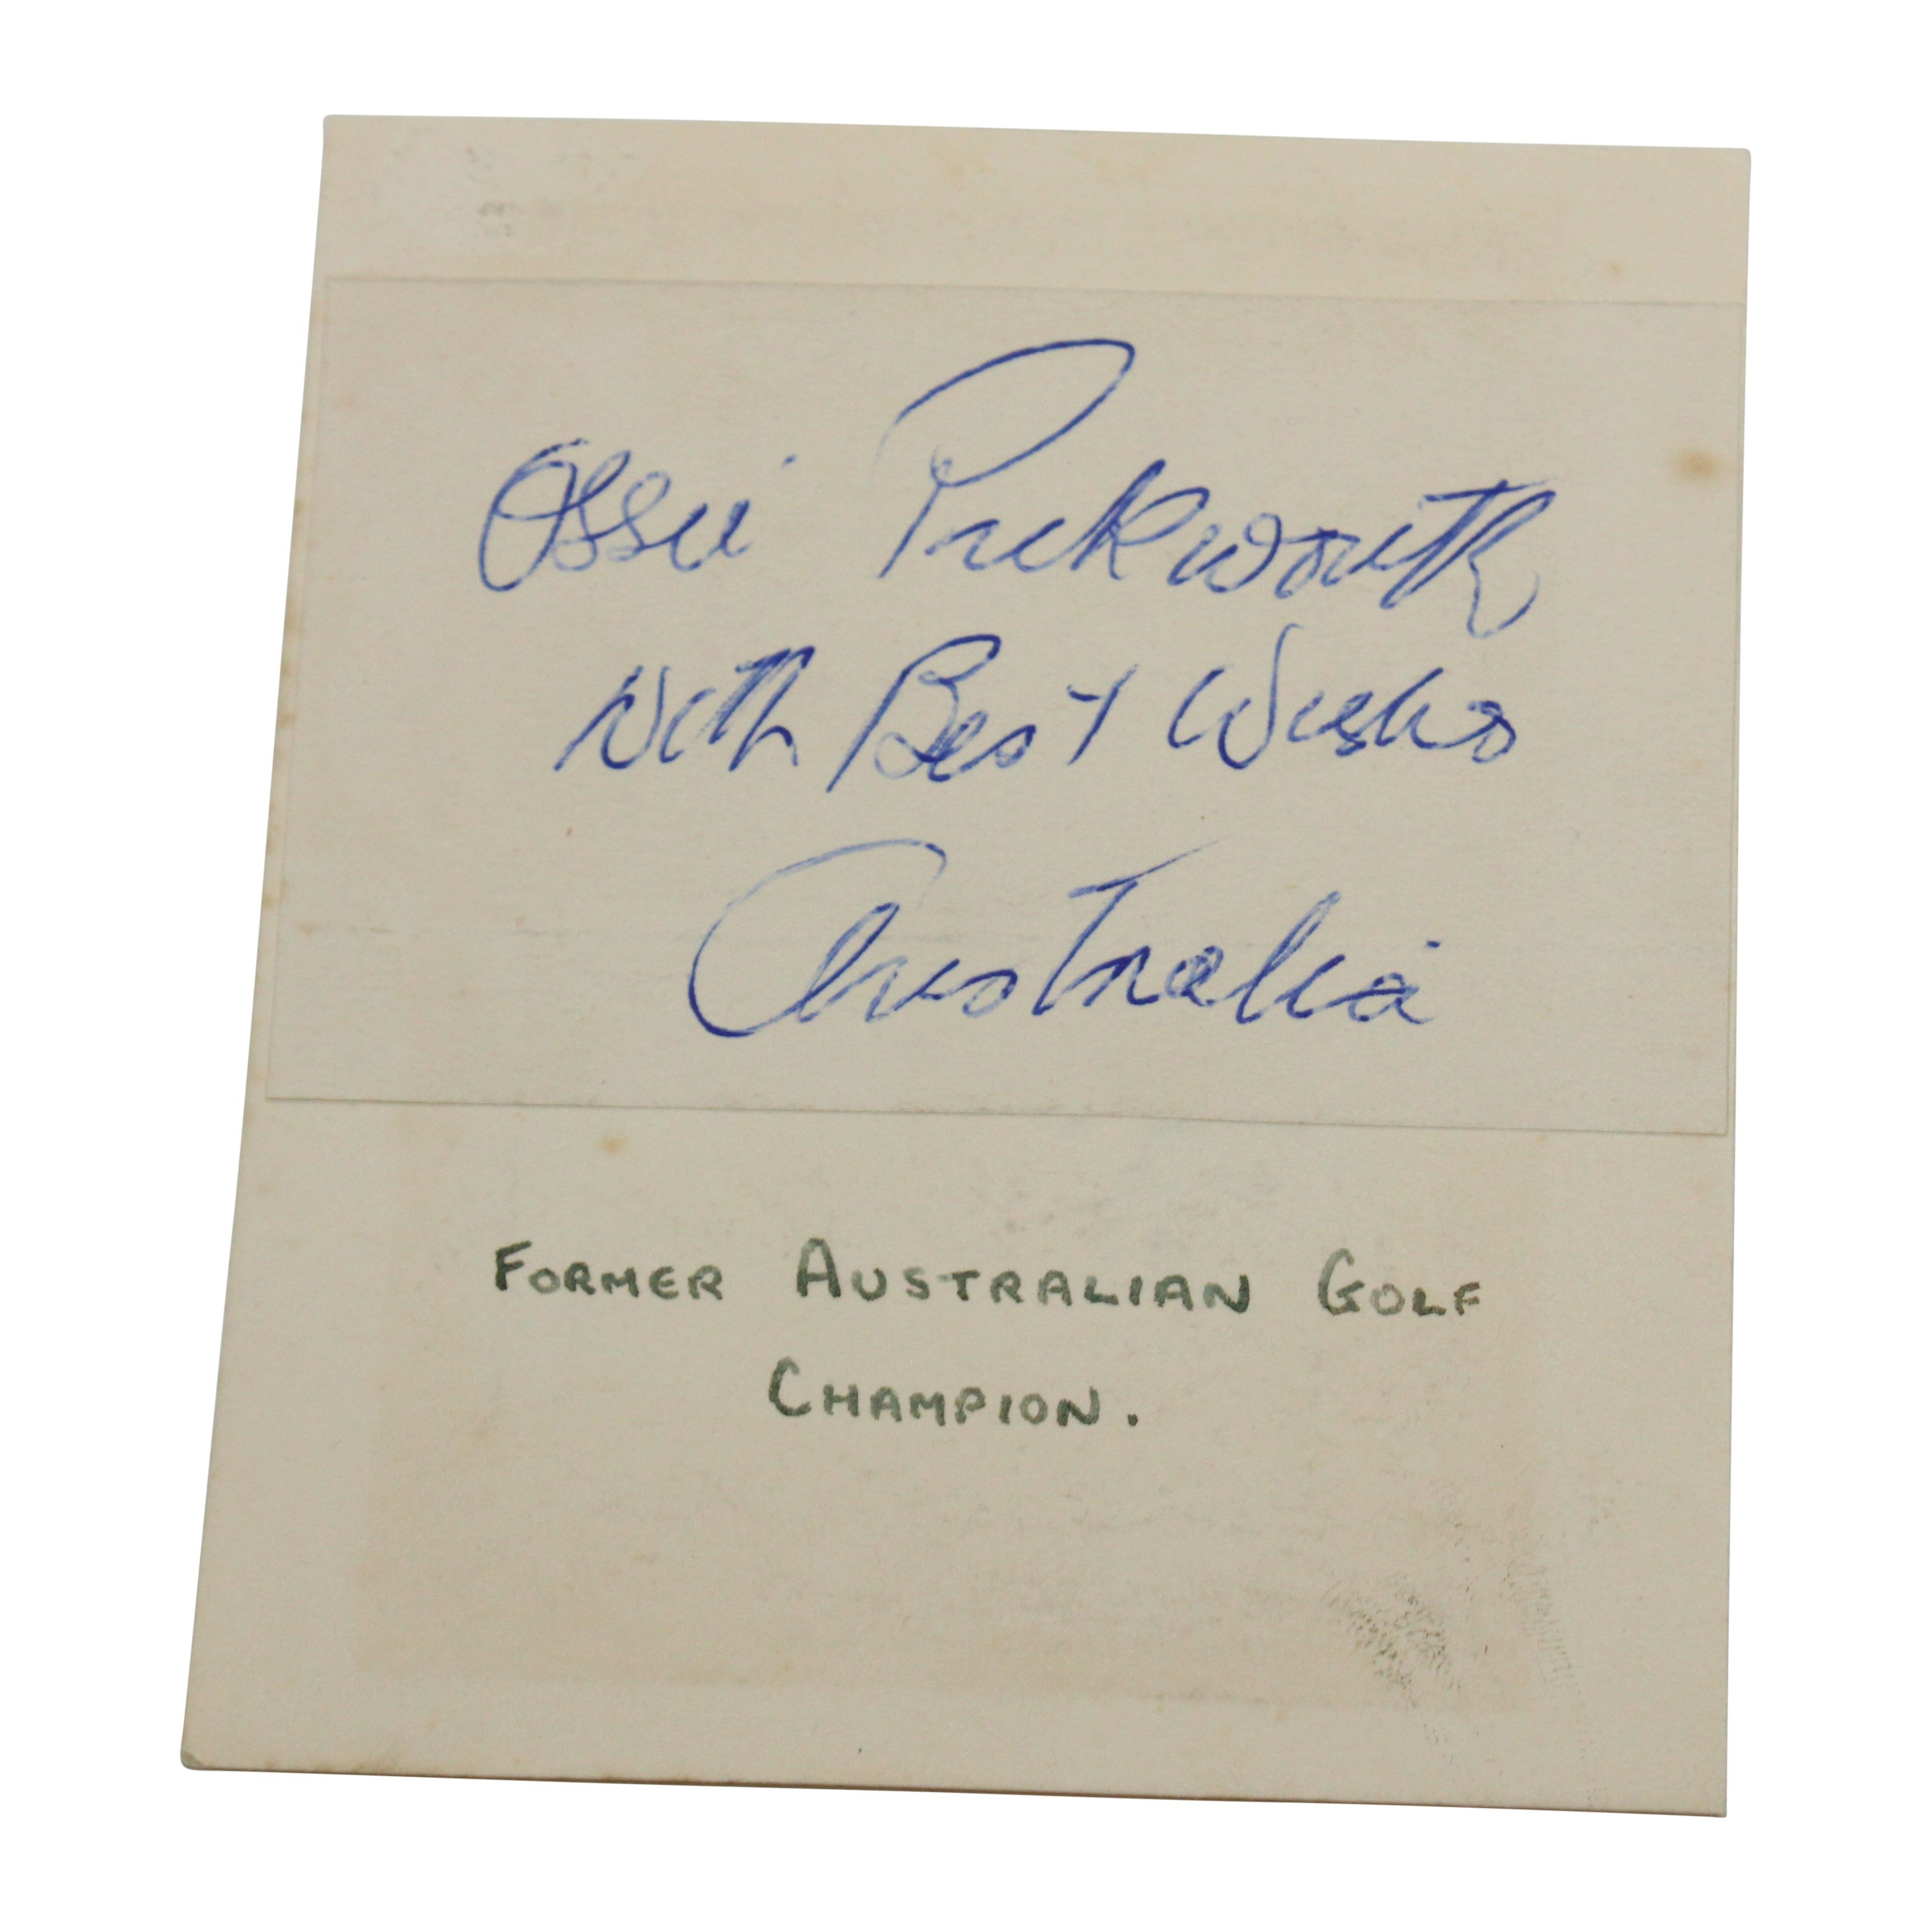 Ossie Pickworth
With Best Wishes
Australia
FORMER AUSTRALIAN GOLF
CHAMPION.